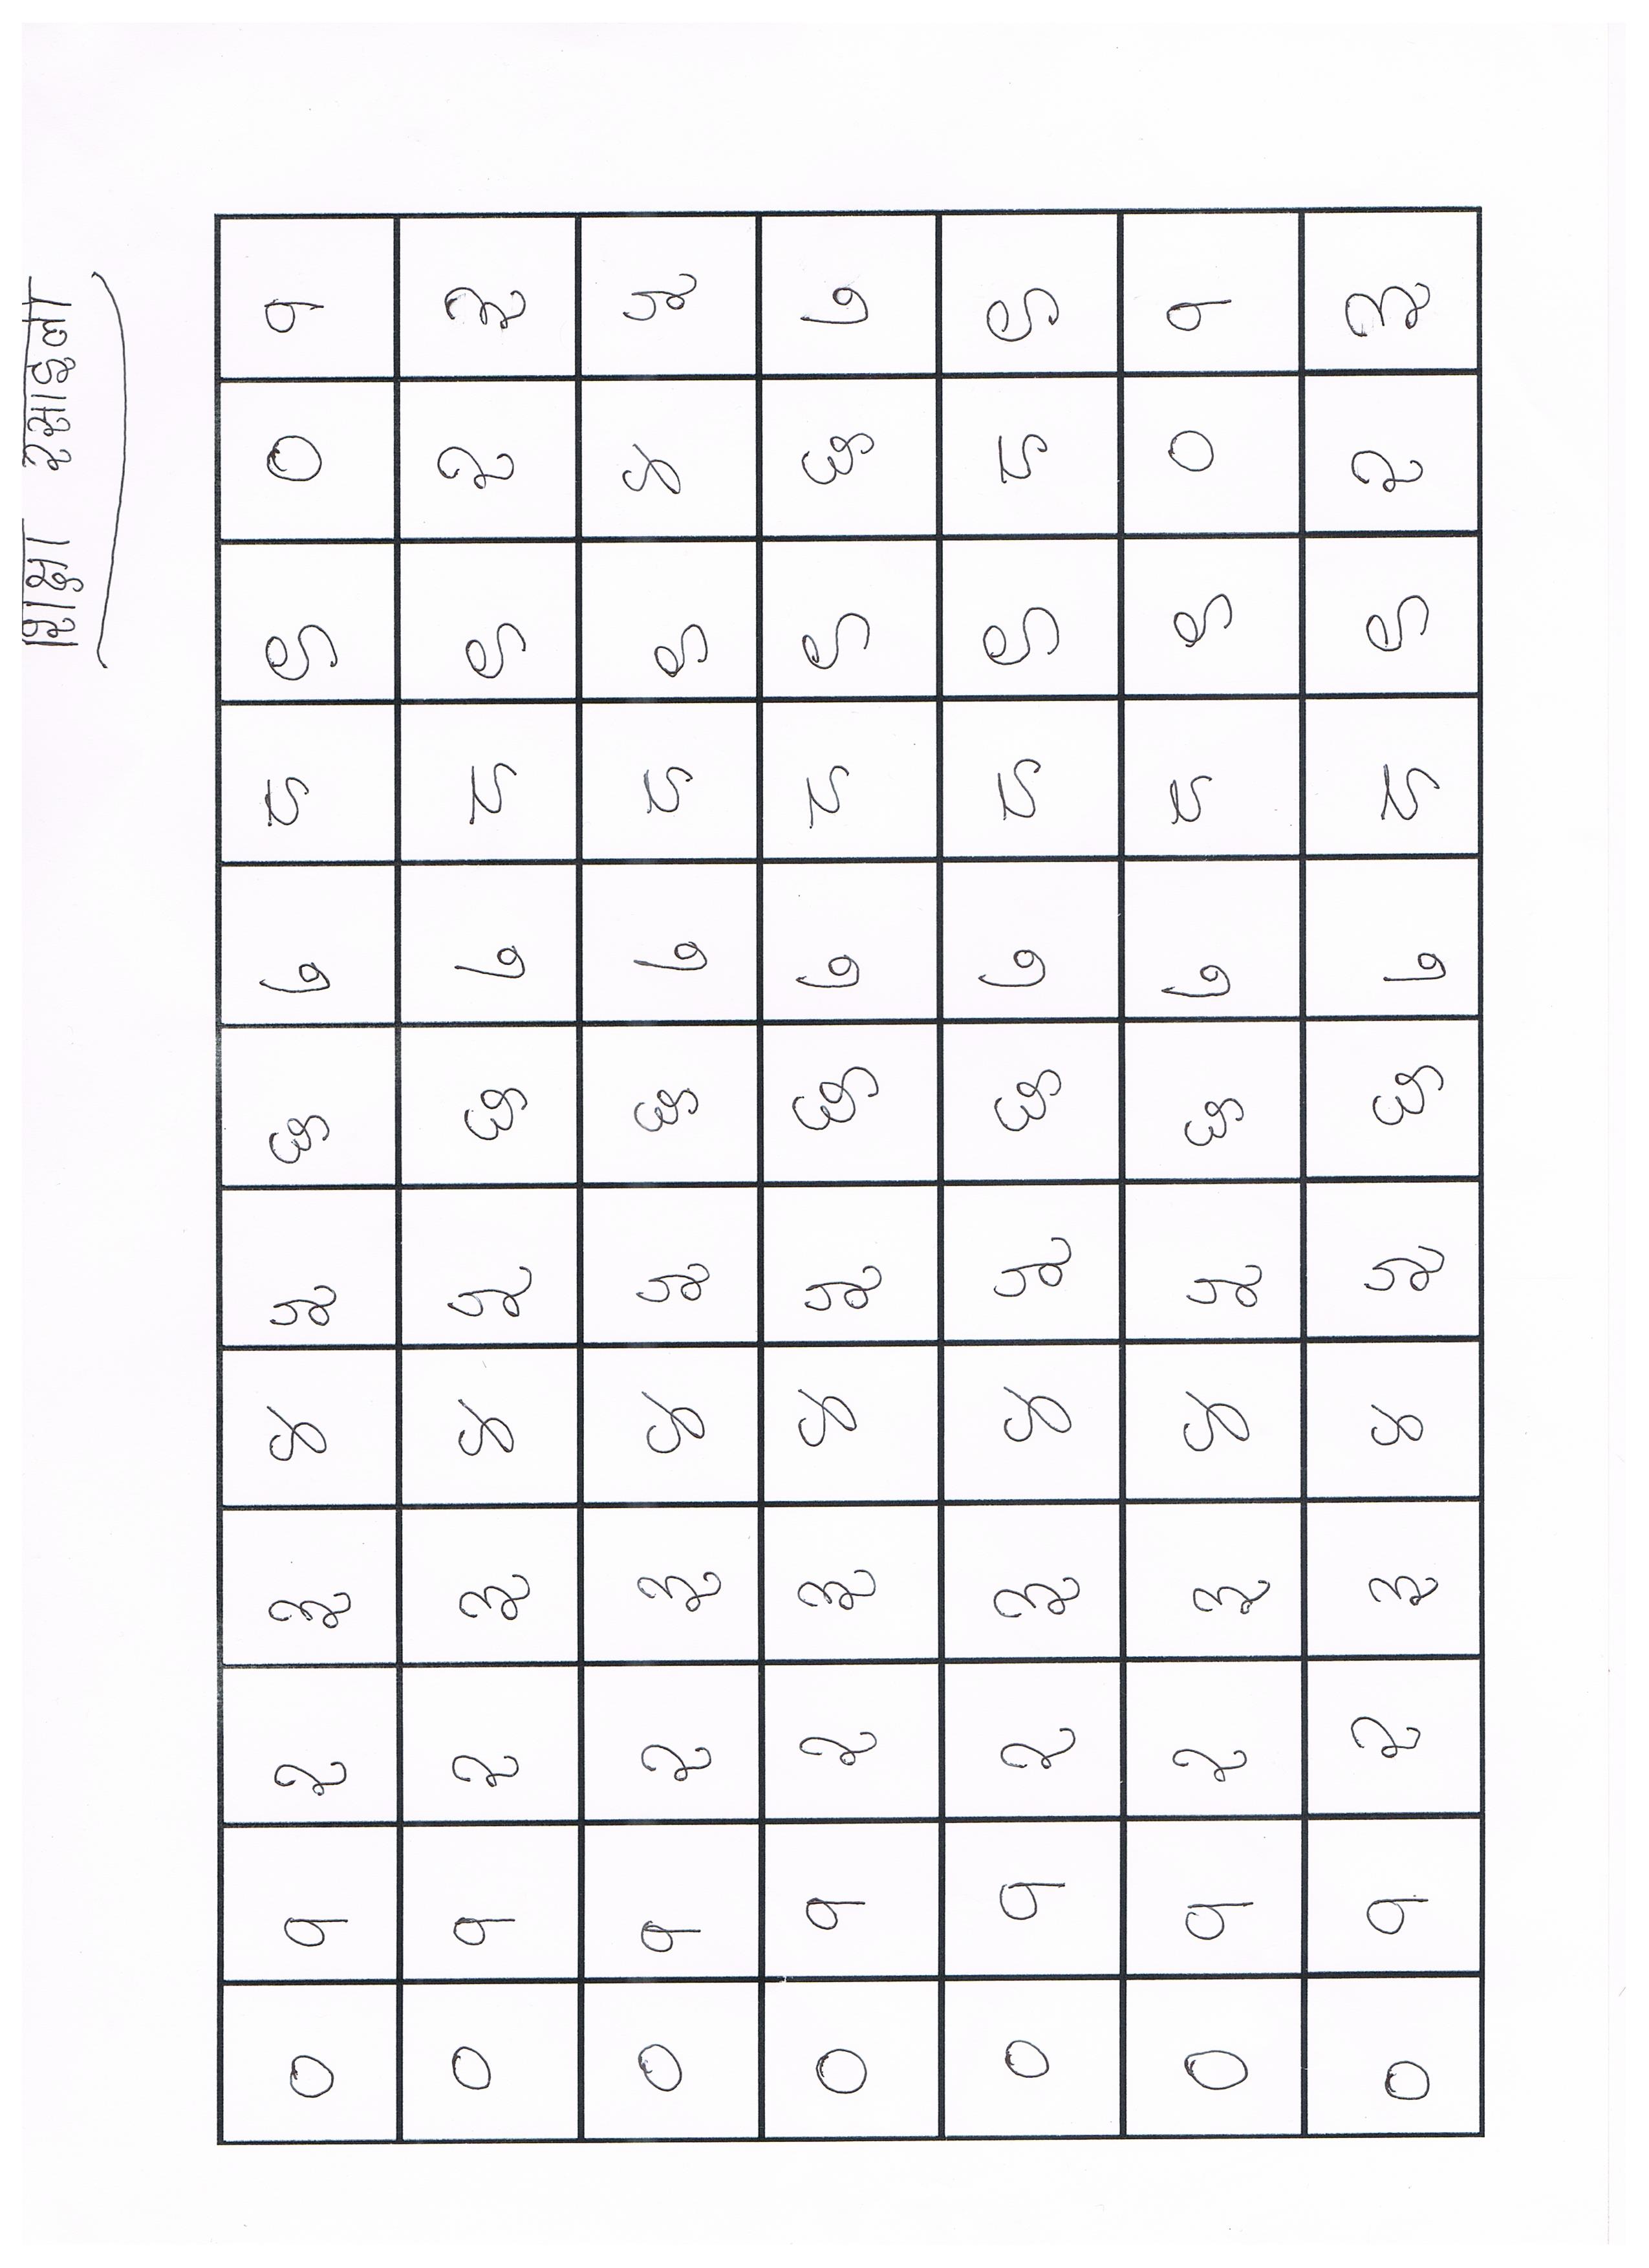 शिक्षा
० १ २ ३ ४ ५ ६ ७ ८ ९ ० १
० १ २ ३ ४ ५ ६ ७ ८ ९ २ ३
० १ २ ३ ४ ५ ६ ७ ८ ९ ४ ५
० १ २ ३ ४ ५ ६ ७ ८ ९ ६ ७
० १ २ ३ ४ ५ ६ ७ ८ ९ ८ ९
० १ २ ३ ४ ५ ६ ७ ८ ९ ० १
० १ २ ३ ४ ५ ६ ७ ८ ९ २ ३